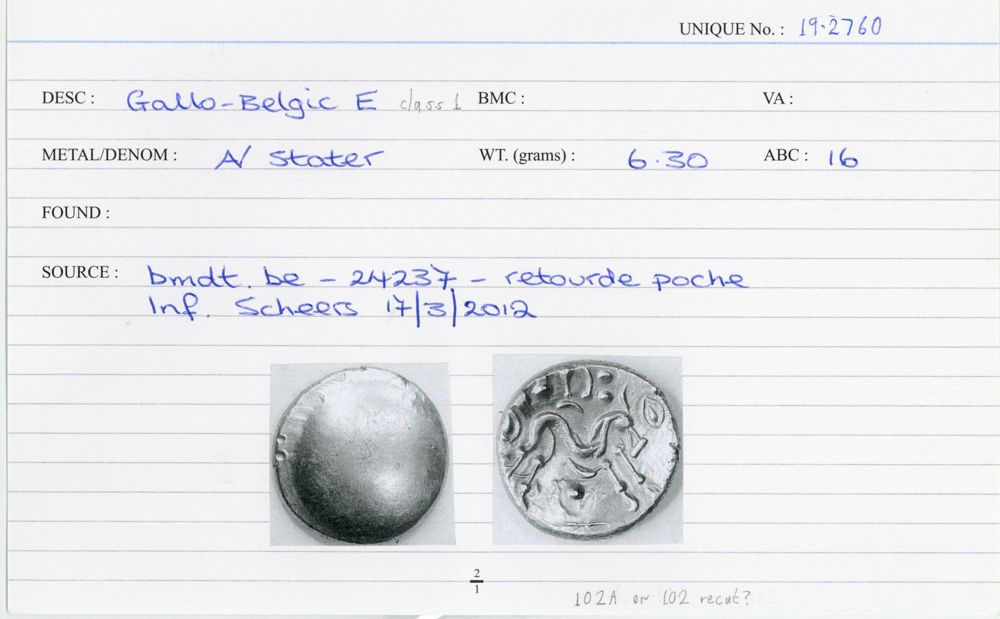 UNIQUE No. : 19.2760
DESC : Gallo-Belgic E class 1 BMC : VA :
METAL/DENOM : A/ Stater WT. (grams) : 6.30 ABC : 16
FOUND :
SOURCE : bmdt.be - 24237 - retourde poche
Inf. Scheers 17/3/2012
2
1
102A or 102 recut?